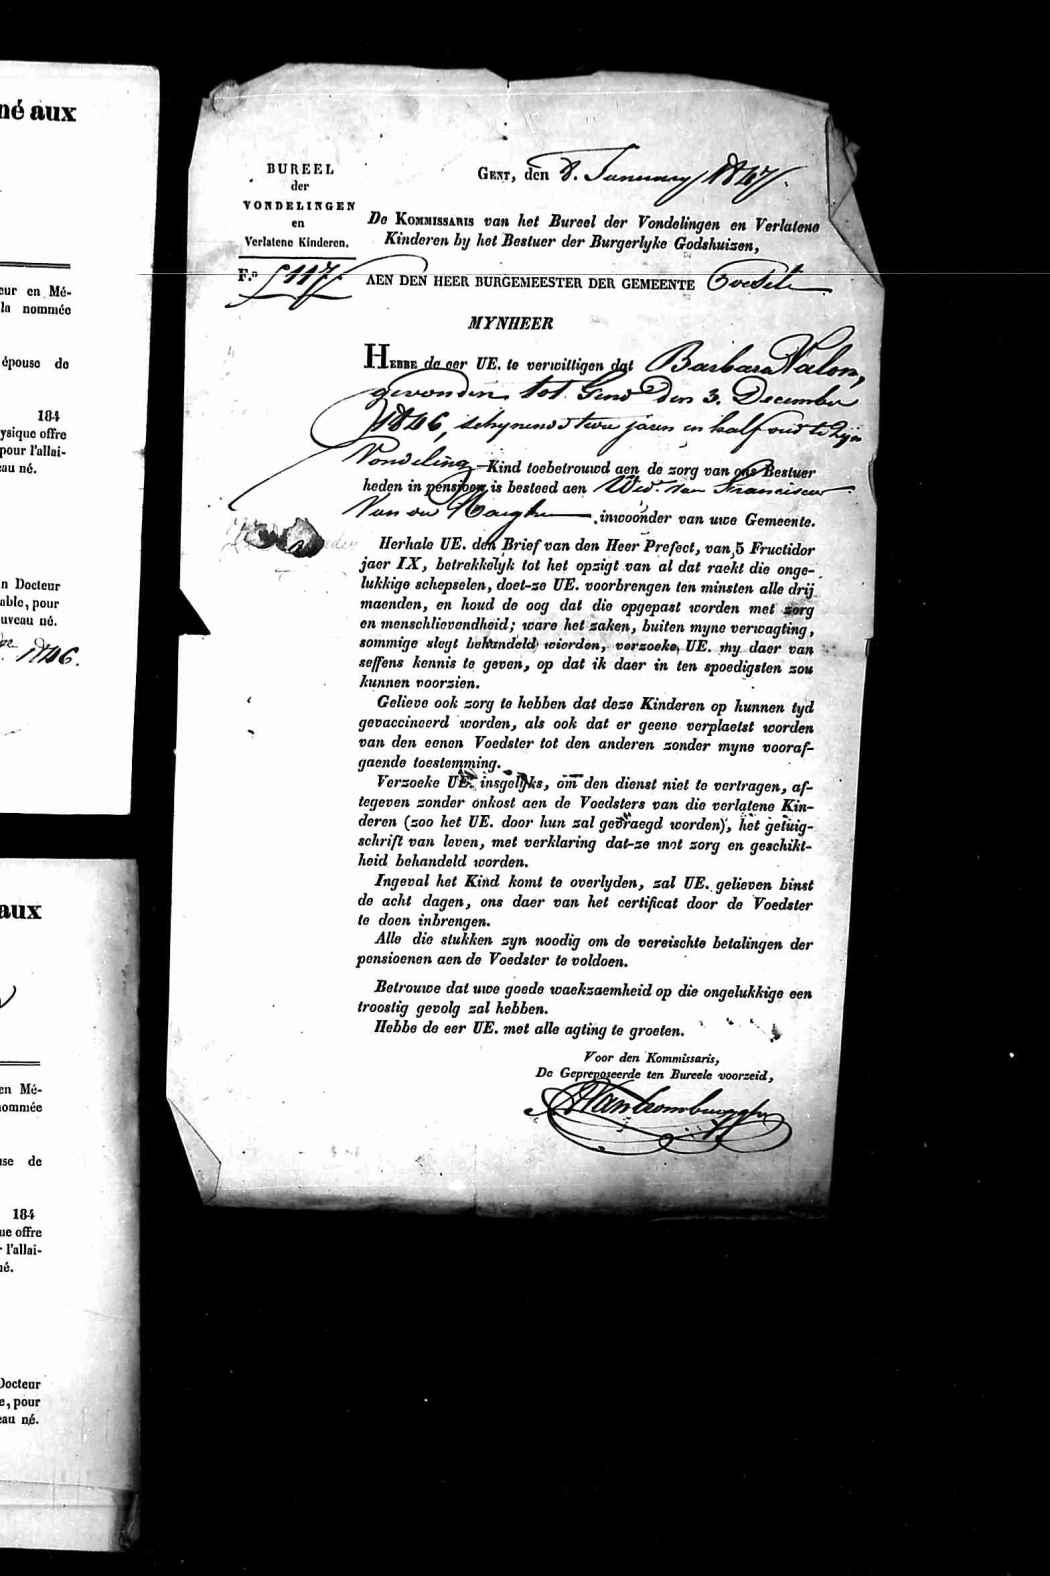 né aux
eur en Mé-
la nommée
épouse de
184
ysique offre
pour l'allai-
eau né.
n Docteur
able, pour
uveau né.
1846.
aux
en Mé-
nommée
use de
184
ue offre
r l'allai-
né.
Docteur
e, pour
eau né.
BUREEL
der
VONDELINGEN
en
Verlatene Kinderen.
F.º 117
GENT, den 8. January 1847.
De KOMMISSARIS van het Bureel der Vondelingen en Verlatene
Kinderen by het Bestuer der Burgerlyke Godshuizen,
AEN DEN HEER BURGEMEESTER DER GEMEENTE
MYNHEER
HEBBE de eer UE. te verwittigen dat Barbara Valon,
gevonden tot Gend den 3. December
1846, schynend twee jaren en half oud te zyn
Vondeling Kind toebetrouwd aen de zorg van ons Bestuer
heden in pensioen is besteed aen Wed. van Franciscus
Van de inwoonder van uwe Gemeente.
Herhale UE. den Brief van den Heer Prefect, van 5 Fructidor
jaer IX, betrekkelyk tot het opzigt van al dat raekt die onge-
lukkige schepselen, doet-ze UE. voorbrengen ten minsten alle drij
maenden, en houd de oog dat die opgepast worden met zorg
en menschlievendheid; ware het zaken, buiten myne verwagting,
sommige slegt behandeld wierden, verzoeke UE. my daer van
seffens kennis te geven, op dat ik daer in ten spoedigsten zou
kunnen voorzien.
Gelieve ook zorg te hebben dat deze Kinderen op hunnen tyd
gevaccineerd worden, als ook dat er geene verplaetst worden
van den eenen Voedster tot den anderen zonder myne vooraf-
gaende toestemming.
Verzoeke UE. insgelyks, om den dienst niet te vertragen, af-
tegeven zonder onkost aen de Voedsters van die verlatene Kin-
deren (zoo het UE. door hun zal gevraegd worden), het getuig-
schrift van leven, met verklaring dat-ze met zorg en geschikt-
heid behandeld worden.
Ingeval het Kind komt te overlyden, zal UE. gelieven binst
de acht dagen, ons daer van het certificat door de Voedster
te doen inbrengen.
Alle die stukken zyn noodig om de vereischte betalingen der
pensioenen aen de Voedster te voldoen.
Betrouwe dat uwe goede waekzaemheid op die ongelukkige een
troostig gevolg zal hebben.
Hebbe de eer UE. met alle agting te groeten.
Voor den Kommissaris,
De Geprepozeerde ten Bureele voorzeid,